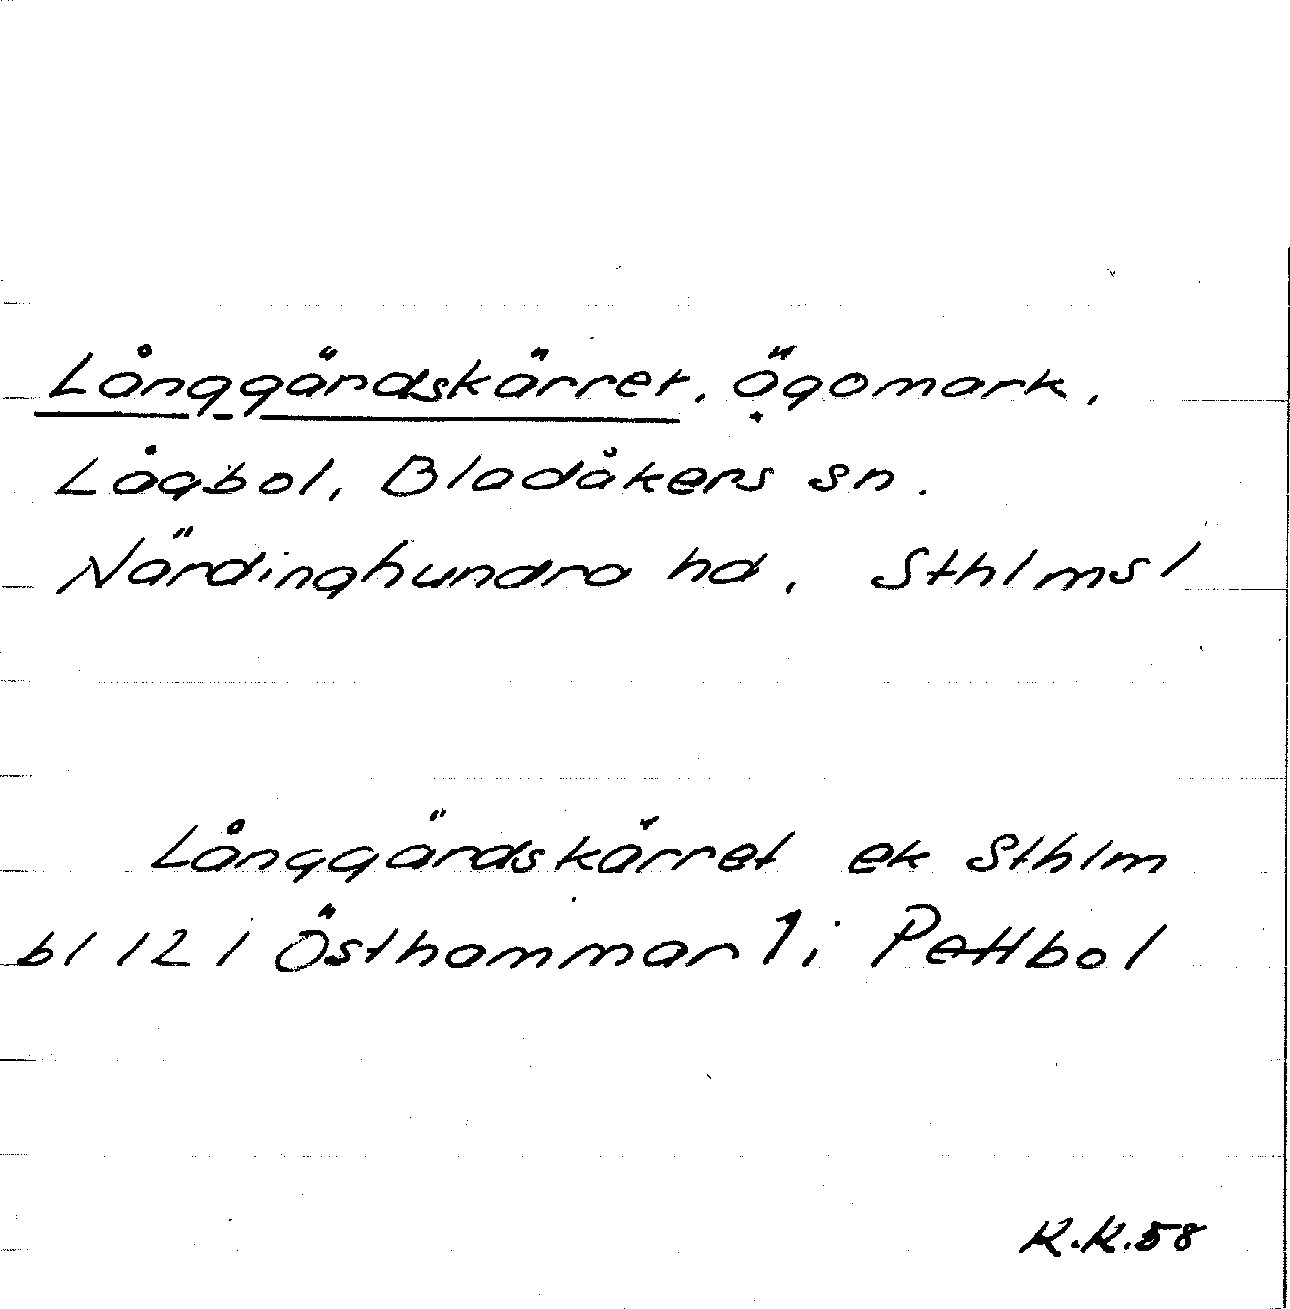 Långgärdskärret, ägomark,
Lågbol, Bladåkers sn.
Närdinghundra hd, Sthlms l
Långgärdskärret ek Sthlm
bl 121 Östhammar 1 i Pettbol
K.K.58